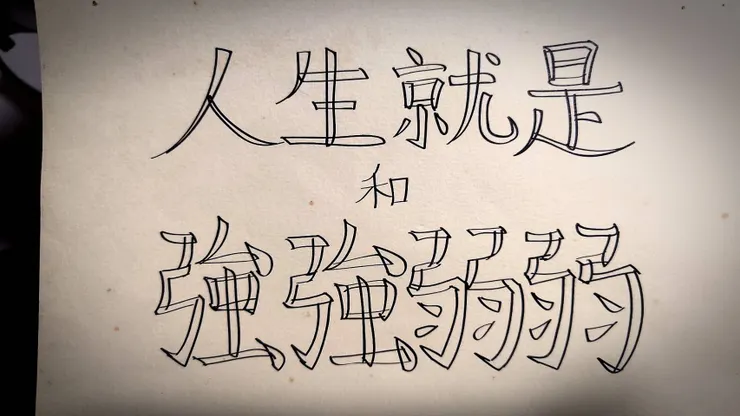 人生就是
和
強強弱弱